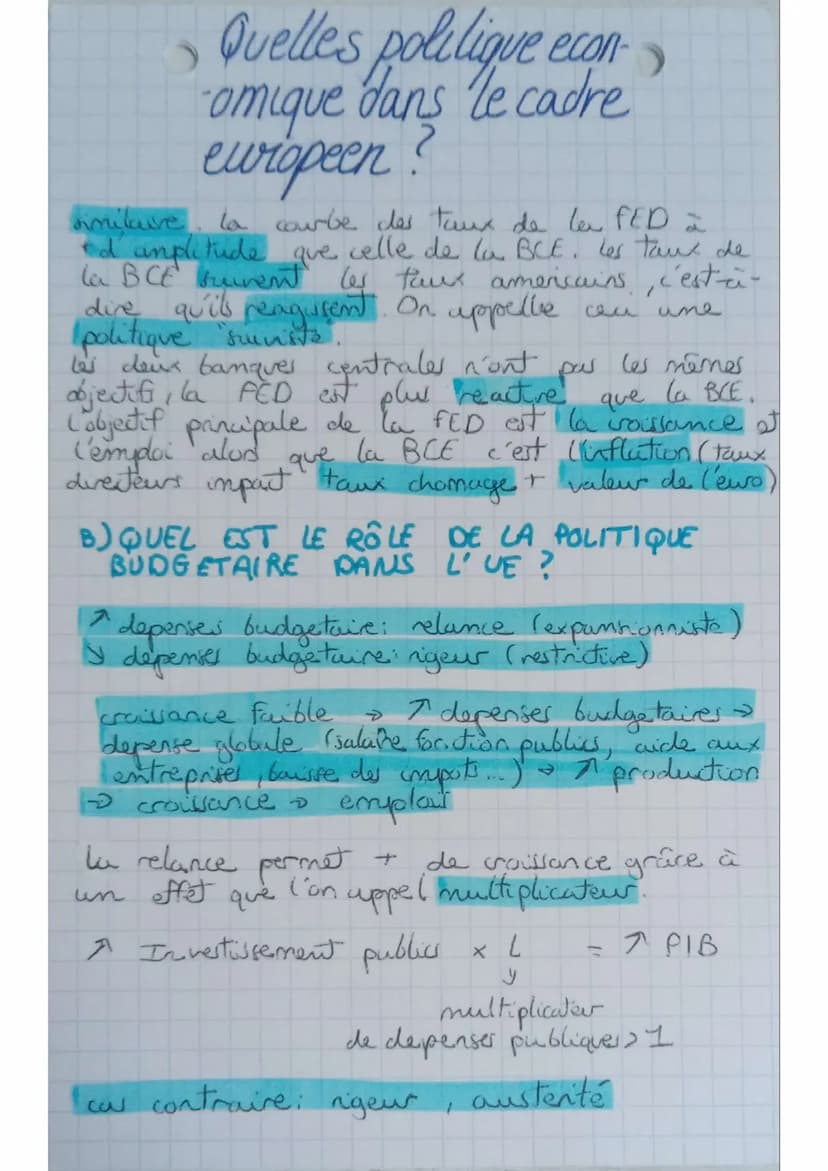 Quelles politique econ-
-omique dans le cadre
europeen ?
similaire. La courbe des taux de la FED à
+ d'amplitude que celle de la BCE. Les taux de
la BCE suivent les taux americains, c'est-à-
dire qu'ils réagissent. On appelle cea une
politique "suiviste".
Les deux banques centrales n'ont pas les mêmes
objectifs, la FED est plus reactive que la BCE.
L'objectif principale de la FED est la croissance et
l'emploi alors que la BCE c'est l'inflation (taux
directeurs impact taux chomage + valeur de l'euro)
B) QUEL EST LE RÔLE DE LA POLITIQUE
BUDGETAIRE DANS L'UE ?
↗ depenses budgetaire: relance (expansionniste)
↘ depenses budgetaire: rigeur (restrictive)
croissance faible → ↗ depenses budgetaires →
depense globale (salaire fonction publics, aide aux
entreprises, baisse des impots...) → ↗ production
→ croissance → emploi
La relance permet + de croissance grâce à
un effet que l'on appel multiplicateur.
↗ Investissement publics x L = ↗ PIB
↓
multiplicateur
de depenses publiques > 1
cas contraire: rigeur, austerité